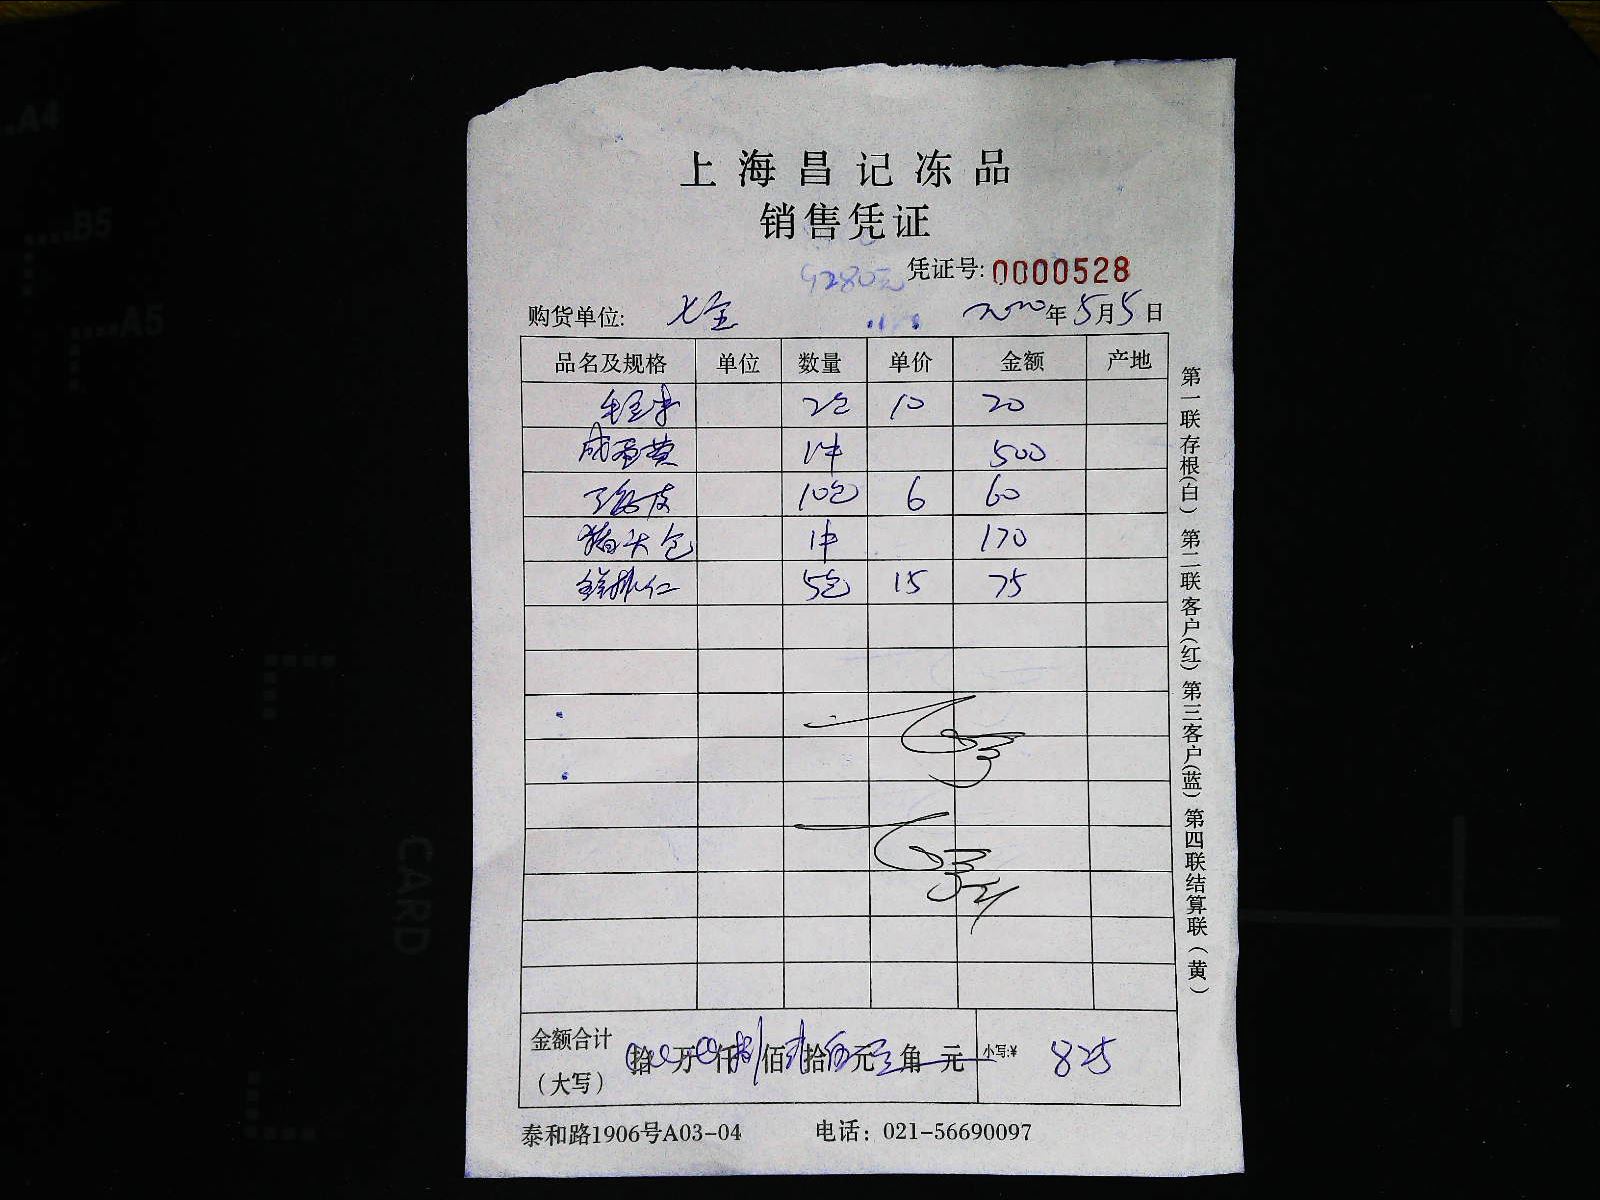 上海昌记冻品
销售凭证
9280元
凭证号: 0000528
购货单位: 七宝 2020年5月5日
品名及规格 单位 数量 单价 金额 产地
2包 10 20
咸蛋黄 1件 500
10包 6 60
猪头包 1件 170
5包 15 75
金额合计（大写） 拾 万 仟捌佰贰拾伍元 角 元 小写:¥ 825
泰和路1906号A03-04 电话：021-56690097
第一联存根(白) 第二联客户(红) 第三客户(蓝) 第四联结算联（黄）
A4
B5
A5
CARD